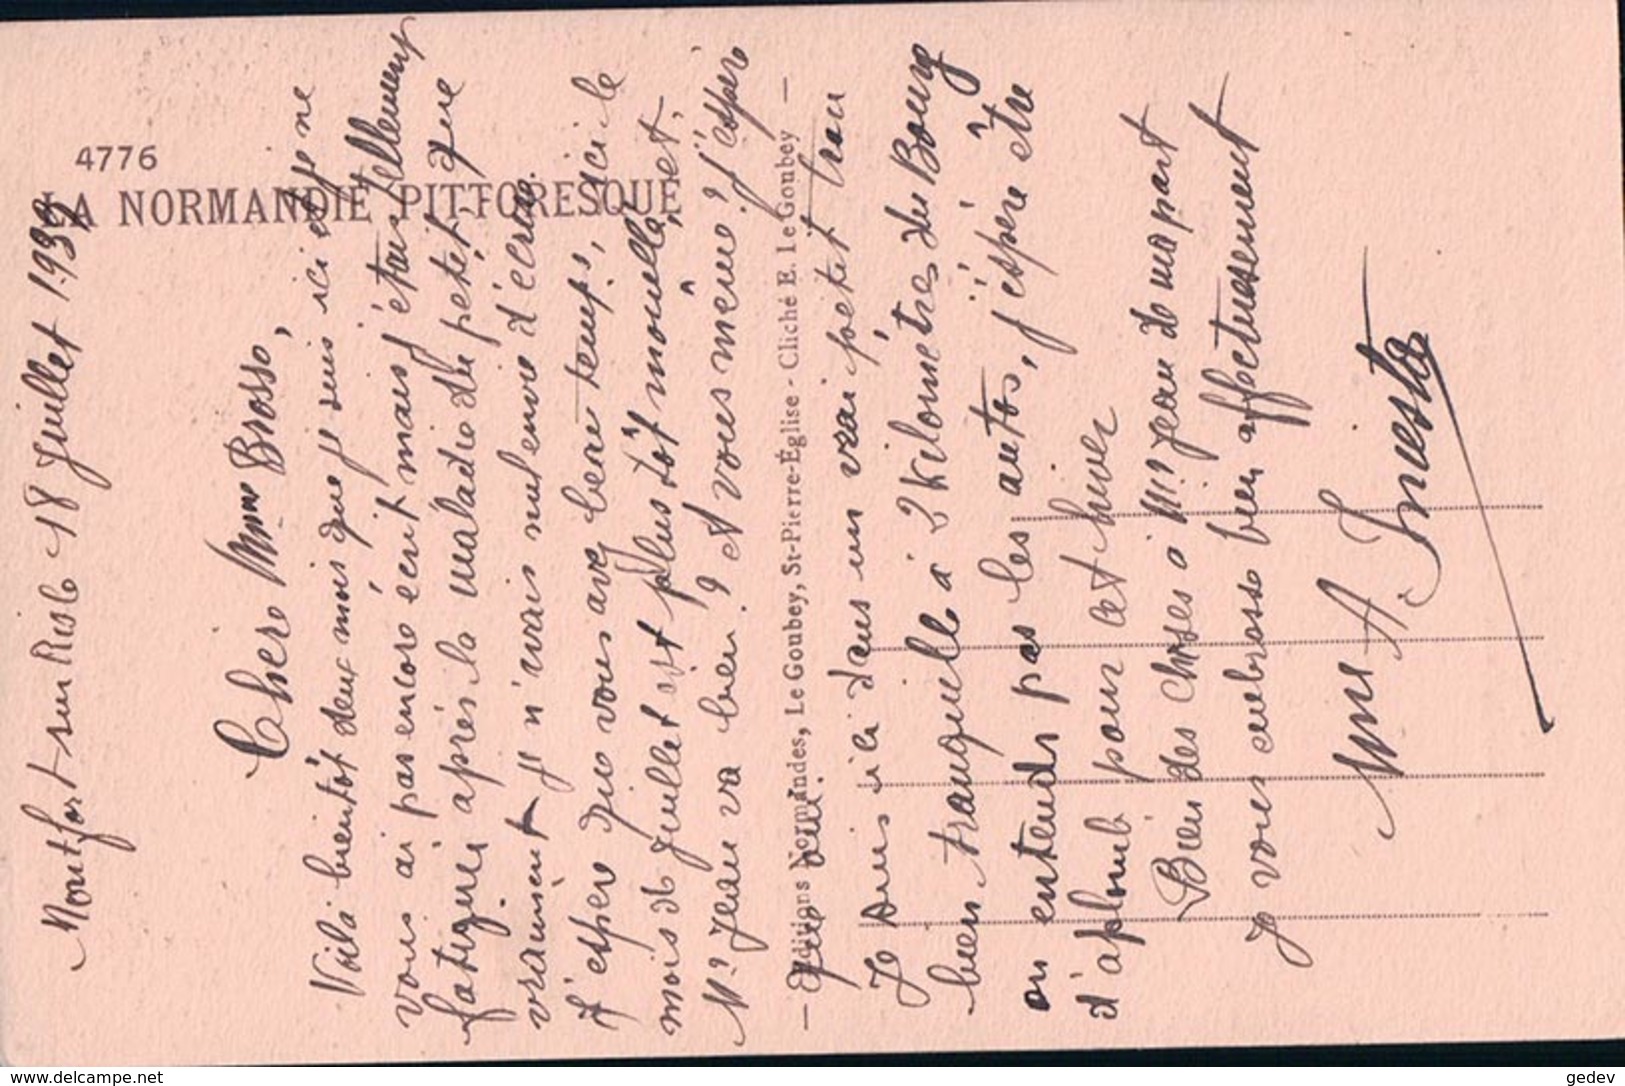 4776
LA NORMANDIE PITTORESQUE
Montfort sur Risle 18 Juillet 1939
Chère Mme Brosso,
Voilà bientôt deux mois que je suis ici et je ne
vous ai pas encore écrit mais j'étais tellement
fatiguée après la maladie du petit, que
vraiment je n'avais nul envie d'écrire.
J'espère que vous avez beau temps, ici le
mois de Juillet est plus tôt mouillé, et,
Mr Jean va bien? et vous même? J'espère
que oui.
— Editions Normandes, Le Goubey, St-Pierre-Église - Cliché E. Le Goubey —
Je suis ici dans un vrai petit trou
bien tranquille à 2 kilomètres du Bourg
on entends pas les autos, j'espère être
d'aplomb pour cet hiver
Bien des choses à Mr Jean de ma part
Je vous embrasse bien affectueusement
Mme A.
www.delcampe.net
gedev